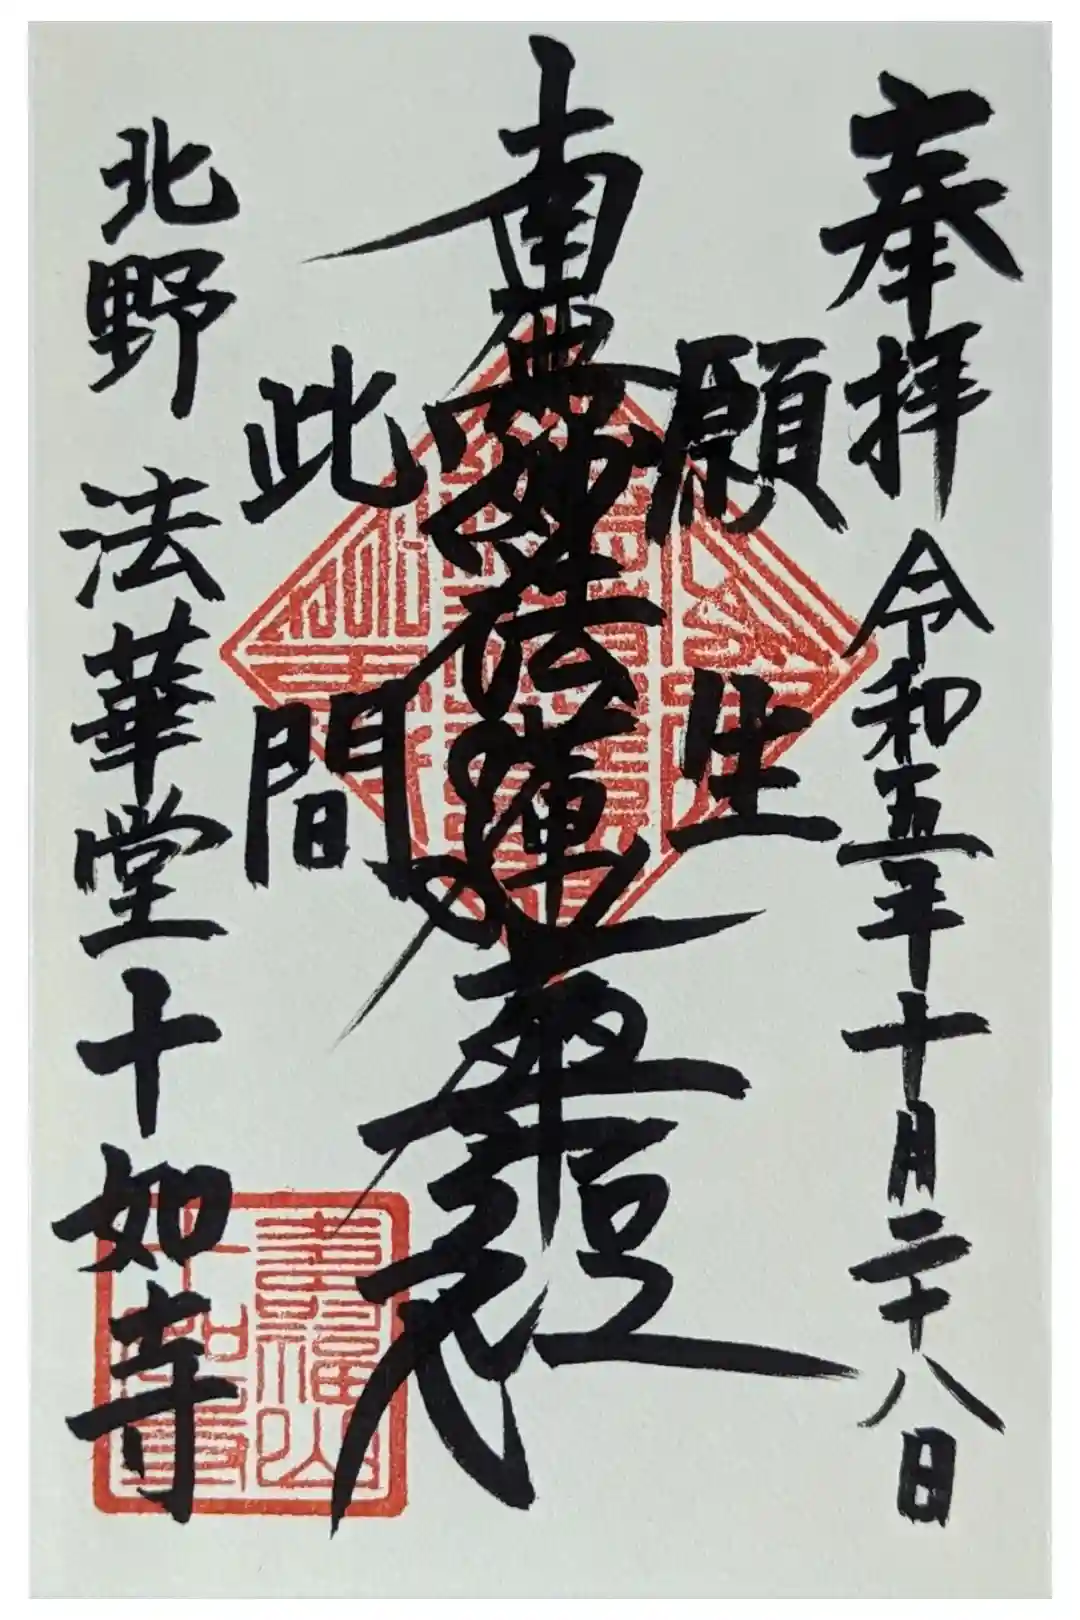 奉拝 令和五年十月二十八日
願生
南無妙法蓮華経
此間
北野 法華堂十如寺